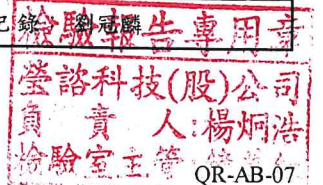 記錄 劉冠麟
檢驗報告專用章
瑩諮科技(股)公司
負責人:楊炯浩
檢驗室主管
QR-AB-07